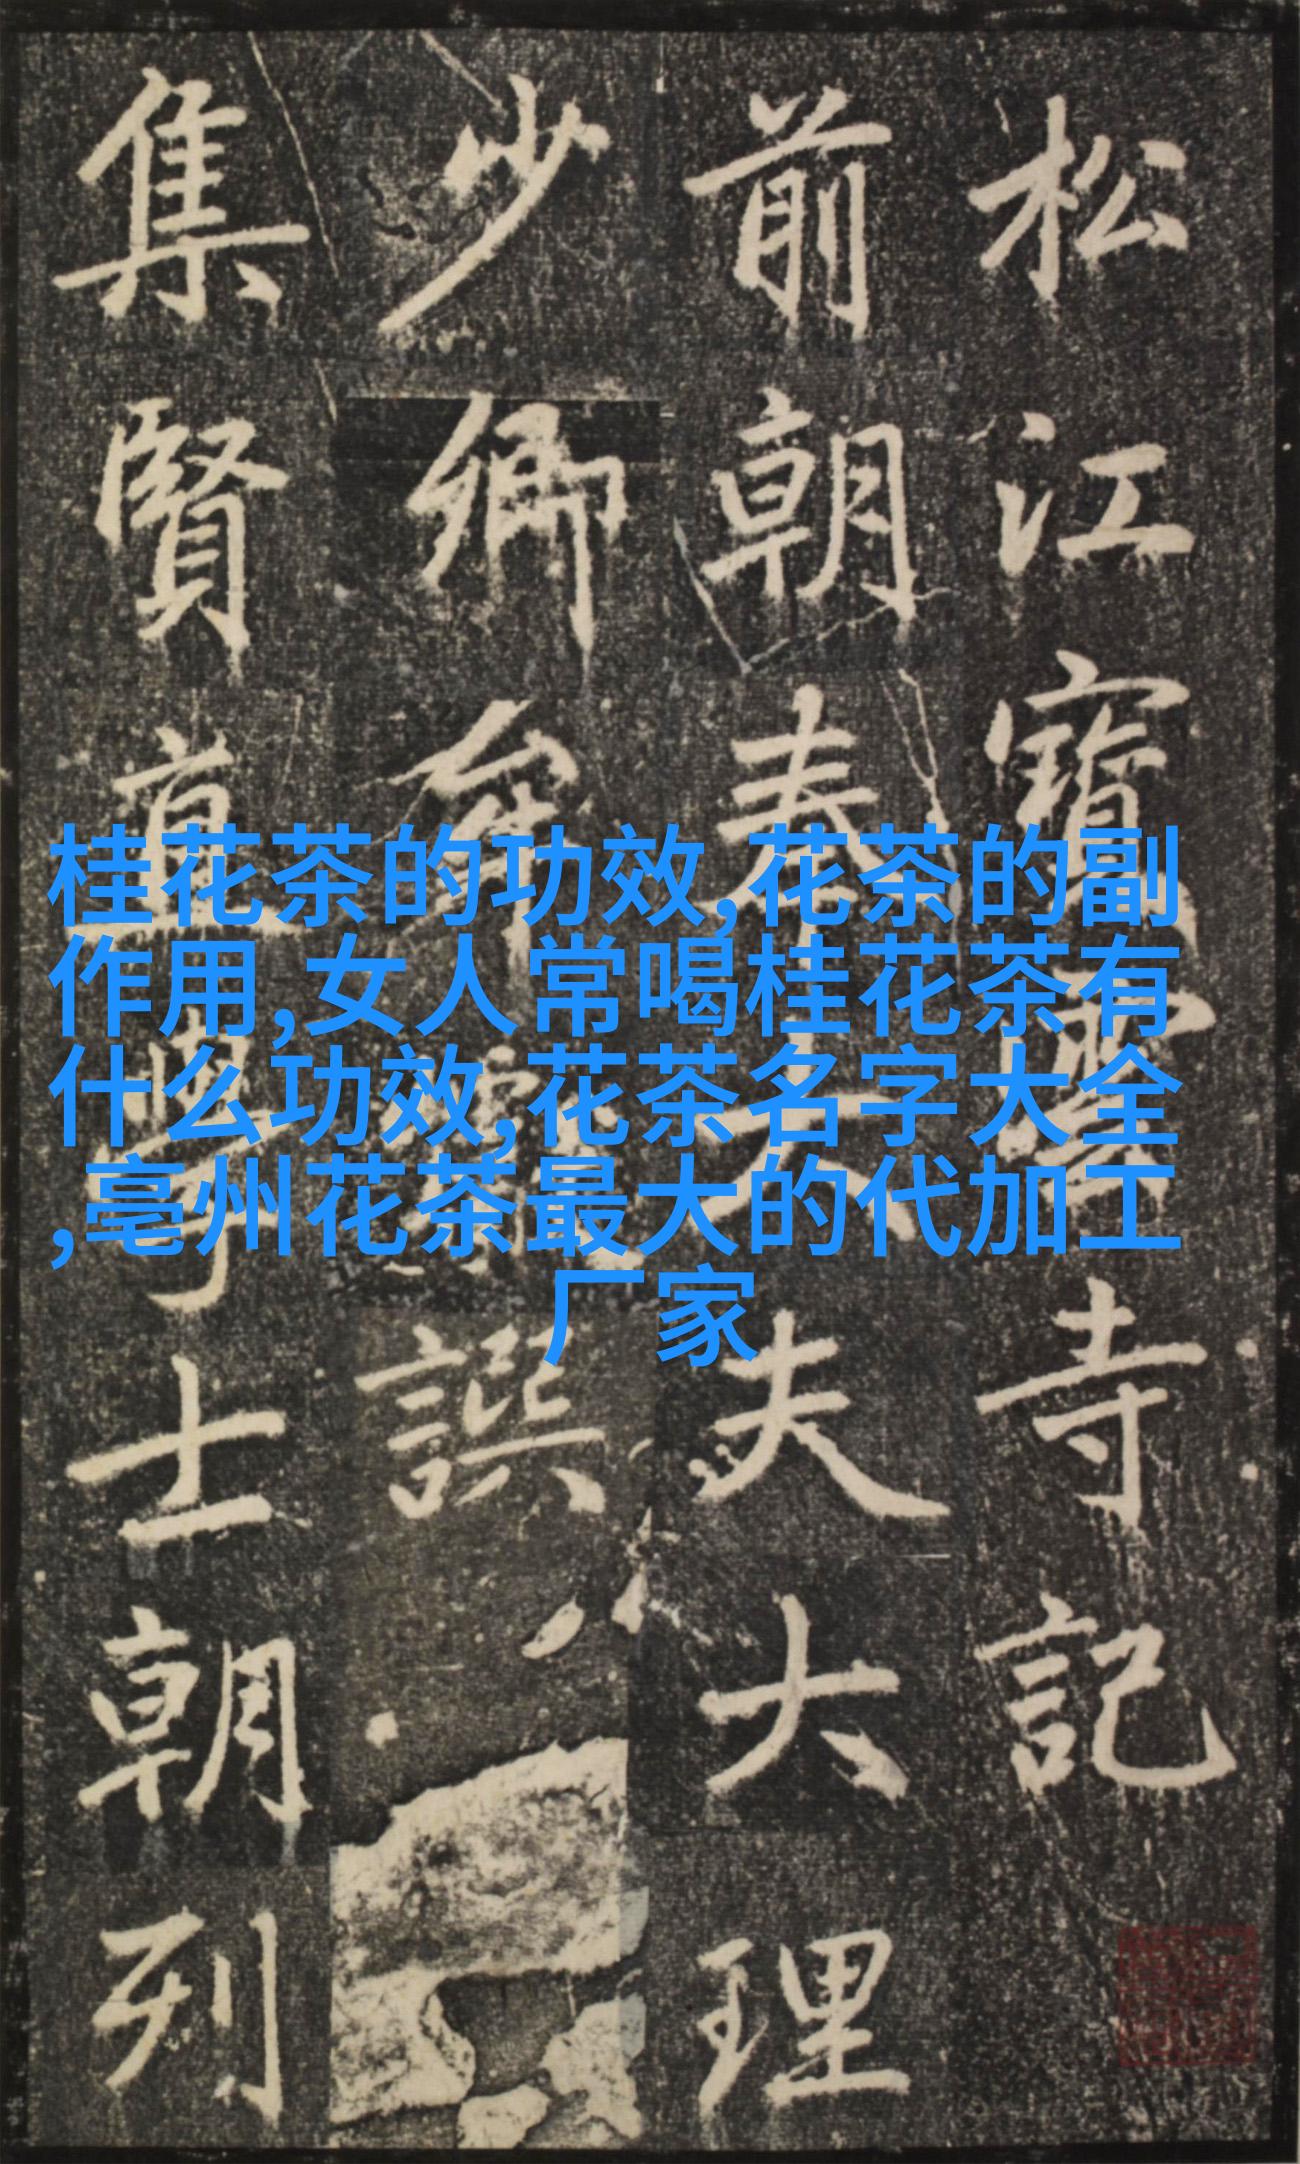 松江寶雲寺記
前朝奉大夫大理
少卿牟譔
集賢直學士朝列
桂花茶的功效,花茶的副
作用,女人常喝桂花茶有
什么功效,花茶名字大全
,亳州花茶最大的代加工
厂家